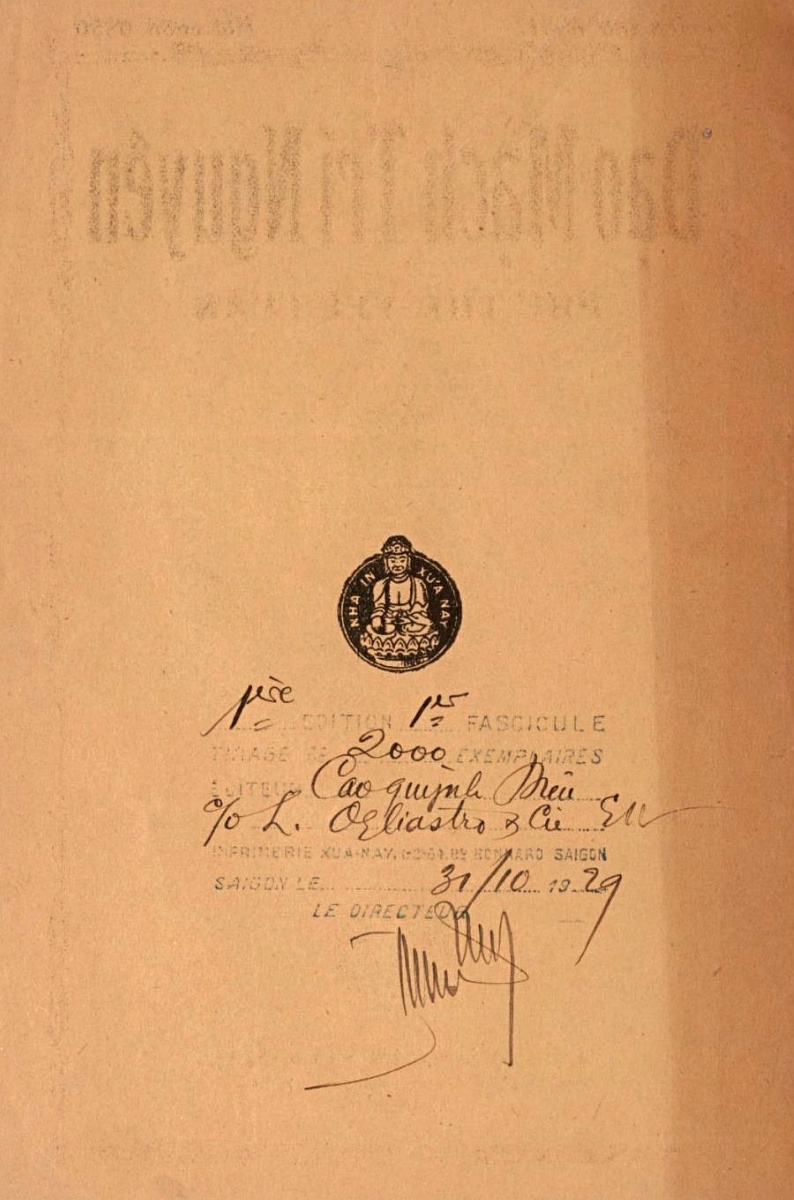 Đạo Mạch Tri Nguyên
NHÀ IN XƯA NAY
1ère EDITION 1er FASCICULE
TIRAGE DE 2000 EXEMPLAIRES
EDITEUR Cao quỳnh Diêu
c/o L. Ogliastro & Cie
IMPRIMERIE XUA-NAY, BONNARD SAIGON
SAIGON LE 31/10 1929
LE DIRECTEUR